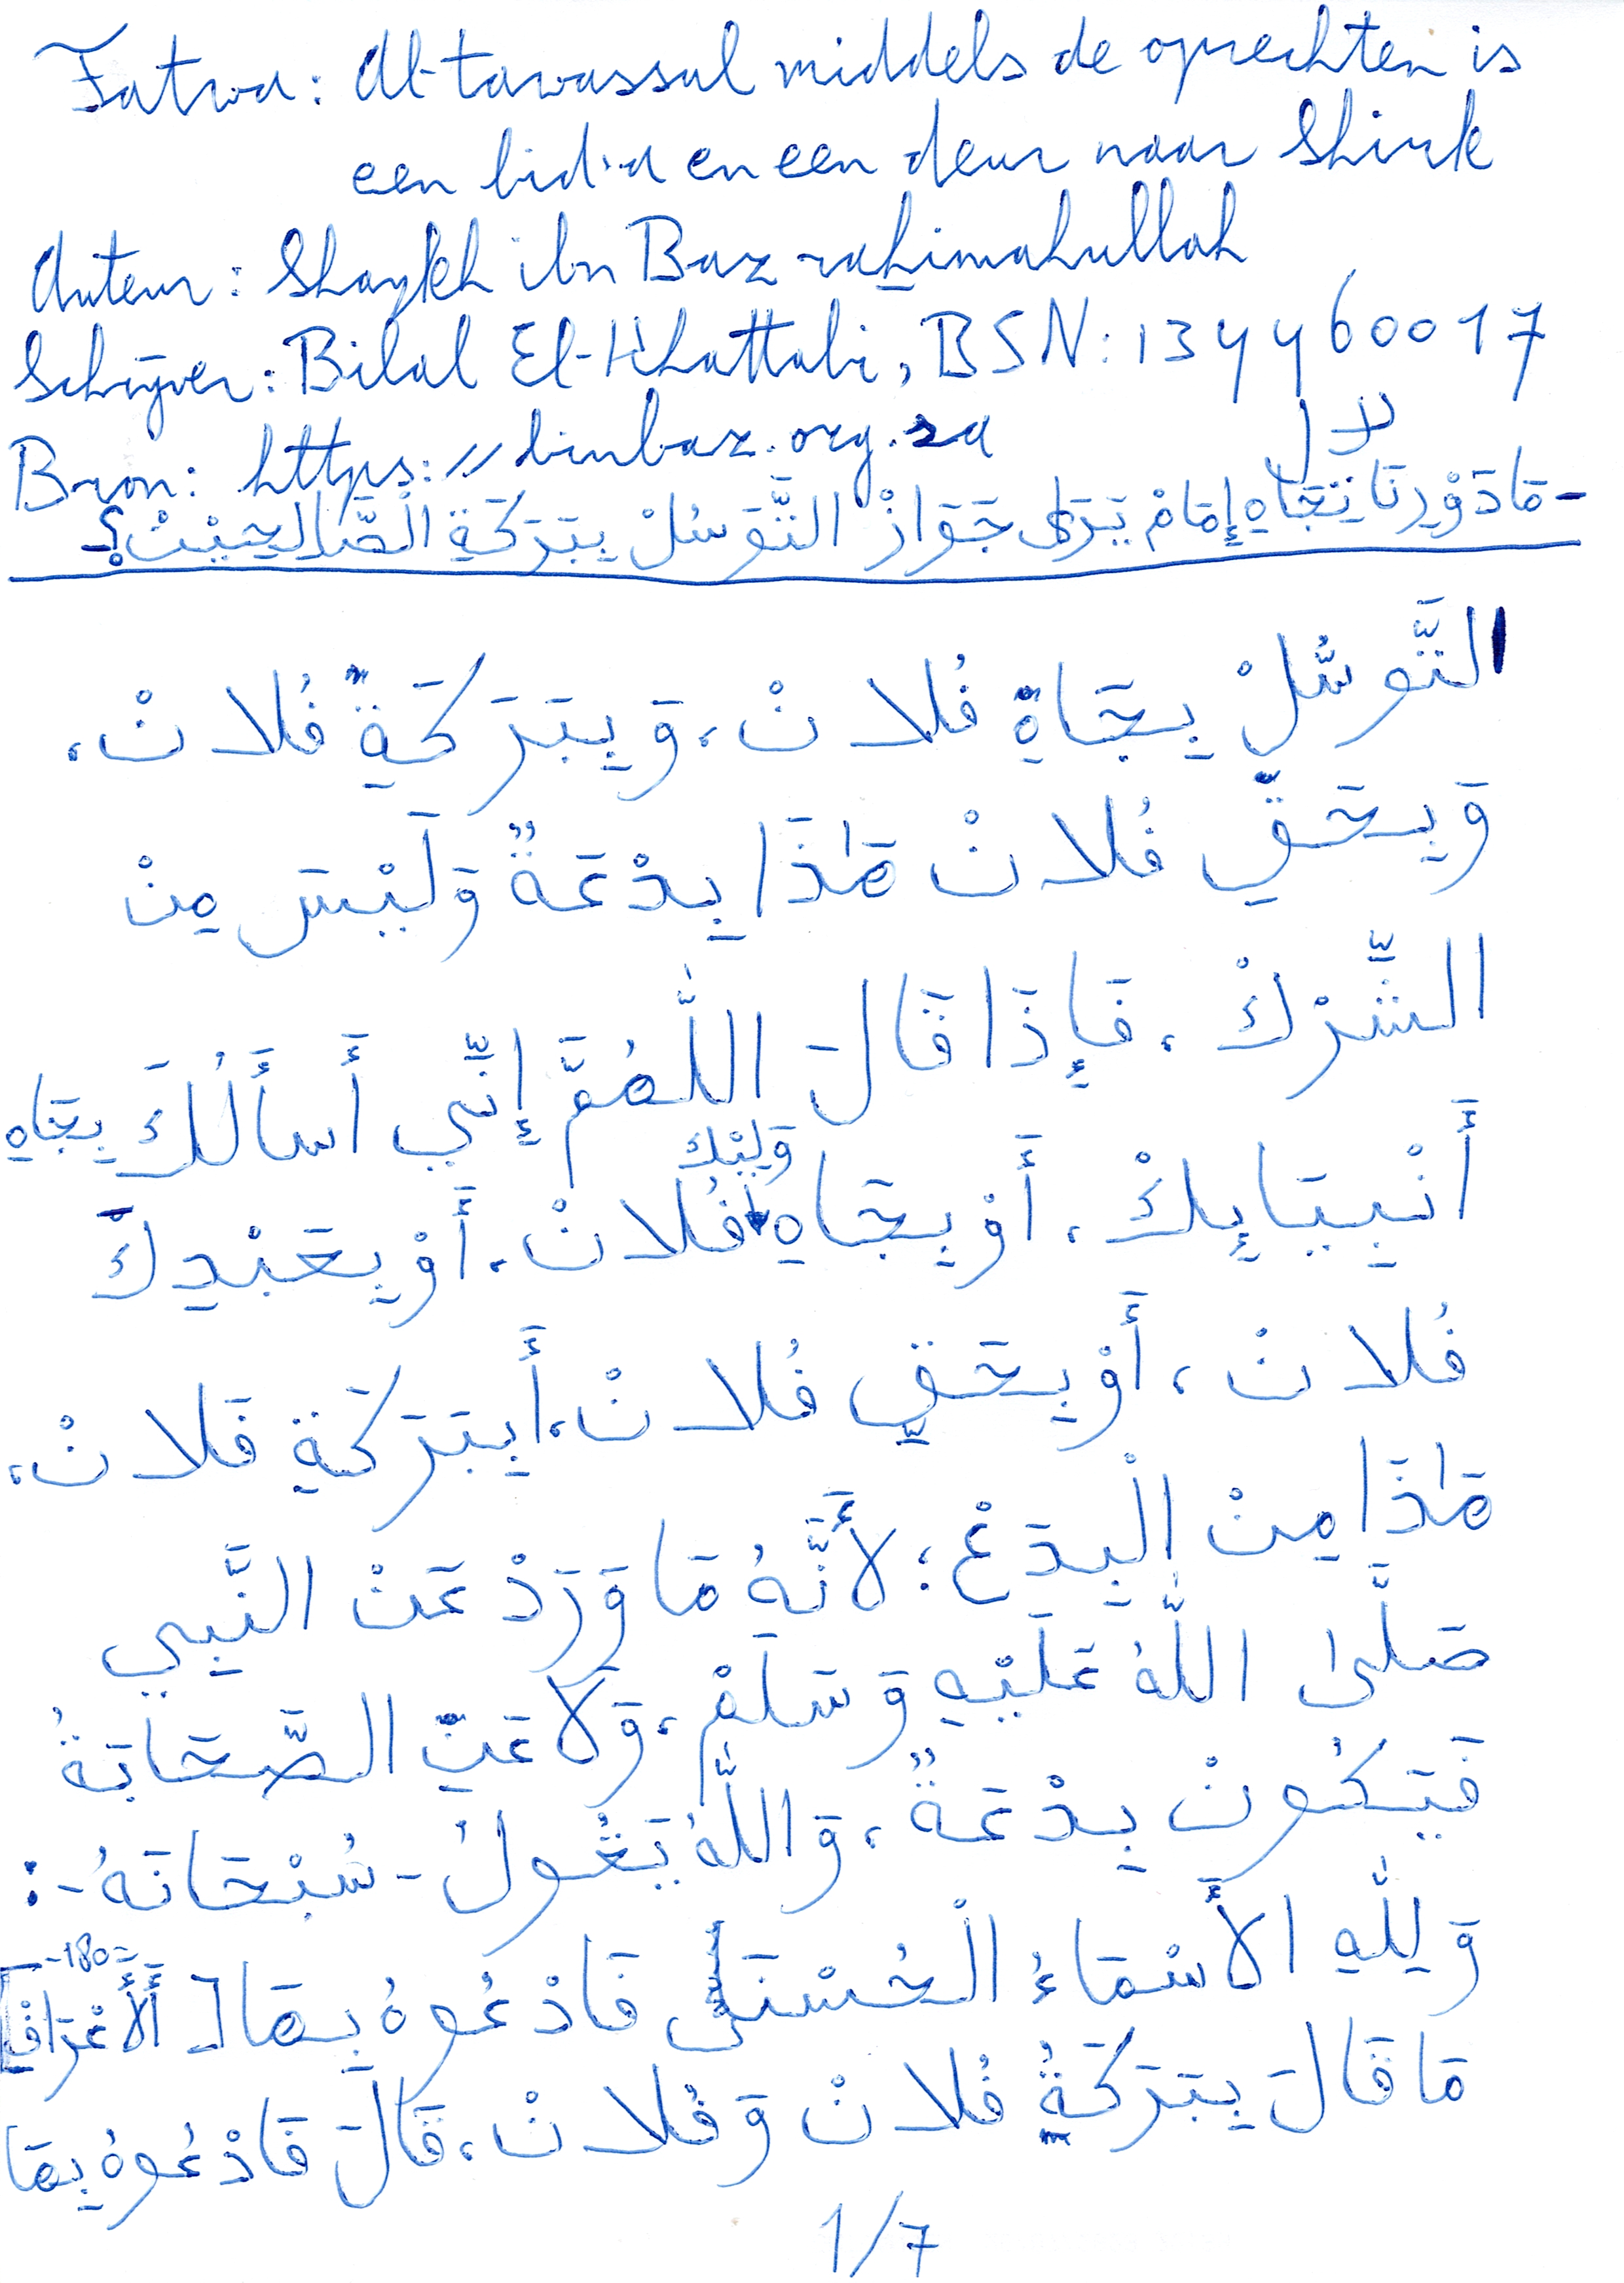 Fatwa: Al-tawassul middels de oprechten is
een bid'a en een deur naar Shirk
Auteur: Shaykh ibn Baz rahimahullah
Schrijver: Bilal El-Khattabi, BSN: 134460017
Bron: https://binbaz.org.sa
- مَا دَوْرِنَا تِجَاهِ إِمَامْ يَرَى جَوَازْ التَّوَسُلْ بِبَرَكَةِ الْصَّالِحِيْنْ؟-
التَّوسُّلْ بِجَاهِ فُلانْ، وَبِبَرَكَةِ فُلانْ،
وَبِحَقِّ فُلانْ هَٰذَا بِدْعَةٌ وَلَيْسَ مِنْ
الشِّرْكْ، فَإِذَا قَالَ- اللَّٰهُمَّ إِنِّي أَسأَلُكَ بِجَاهِ
أَنْبِيَايِكْ، أَوْ بِجَاهِ وَلِيْكَ فُلانْ، أَوْ بِعَبْدِكْ
فُلانْ، أَوْ بِحَقِّ فُلانْ، أَبِبَرَكَةِ فَلانْ،
هَٰذَا مِنْ الْبِدَعْ؛ لأَنَّهُ مَا وَرَدْ عَنْ النَّبِي
صَلَّىٰ اللَّٰهُ عَلَيْهِ وَسَلَمْ، وَلا عَنِ الصَّحَابَةُ
فَيَكُونْ بِدْعَةٌ، وَاللَّٰهُ يَقُولُ - سُبْحَانَهُ -:
وَلِلَّٰهِ الأَسْمَاءُ الْحُسْنَىٰ فَادْعُوهُ بِهَا [أَلأَعْرَافْ -180-]
مَا قَالَ بِبَرَكَةِ فُلانْ وَفُلانْ، قَالَ فَادْعُوهُ بِهَا
1/7